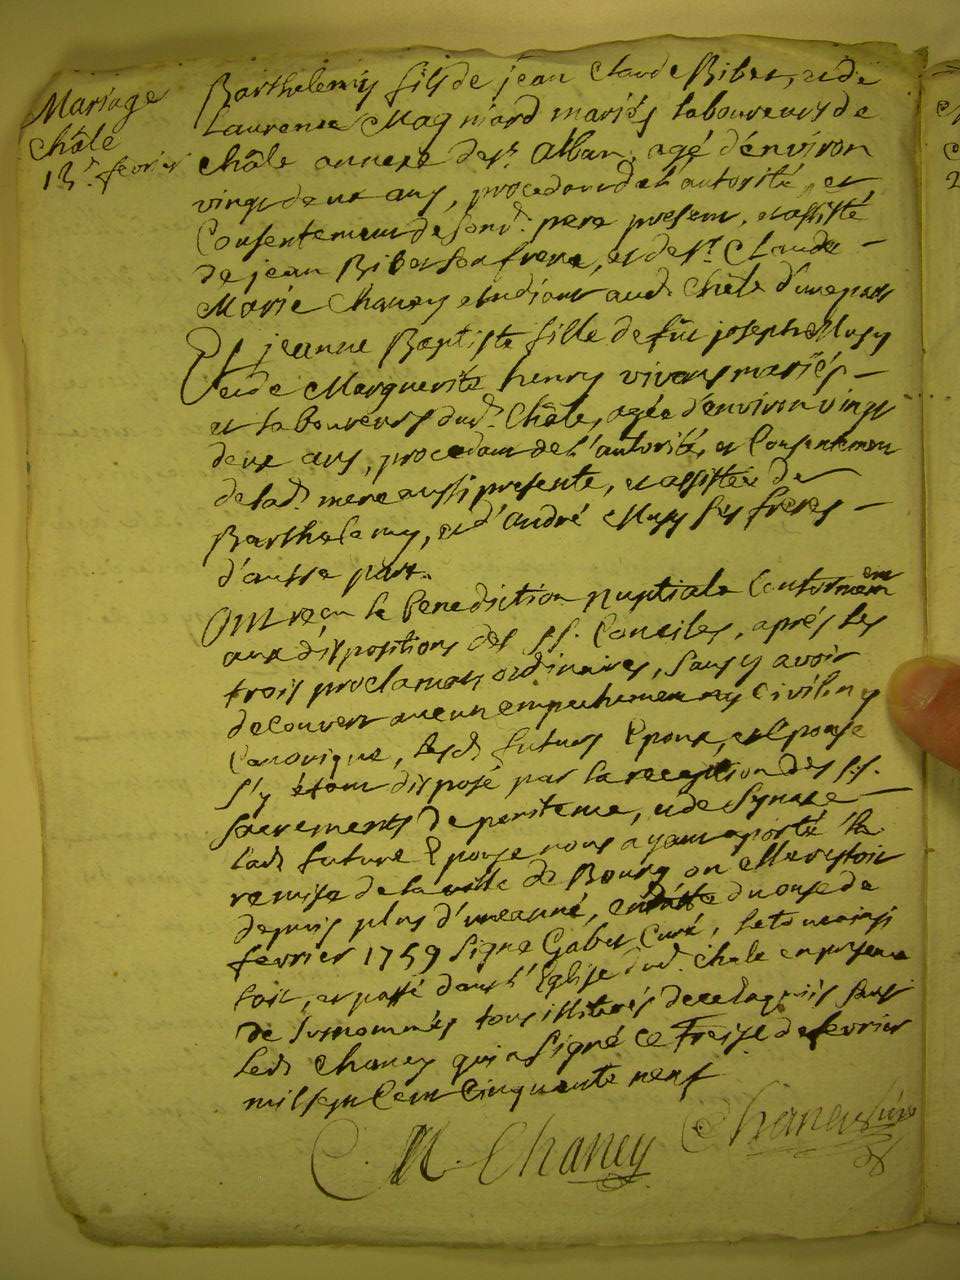 Mariage
Châle
13.e fevrier
Barthelemy fils de jean Claude Ribet, et de
Laurence Magniard mariés laboureurs de
Châle annexe de st. alban, agé d'environ
vingt deux ans, procedant de l'autorité, et
Consentement de son d. pere present, et assisté
de jean Ribet son frere, et de sr. Claude
Marie Chaney etudiant aud. Châle d'une part
Et jeanne Baptiste fille de fût joseph Musy
et de Marguerite henry vivans mariés
et laboureurs dud. Châle, agée d'environ vingt
deux ans, procedant de l'autorité, et Consentement
de lad. mere aussi presente, et assistée de
Barthelemy, et d'andré Musy ses freres
d'autre part.
Ont reçu la benediction nuptiale Conformément
aux dispositions des ss. Conciles, aprés les
trois proclamaõns ordinaires, sans y avoir
decouvert aucun empechement ny Civil ny
Canonique, lesd. futurs Epoux, et Epouse
s'y étant disposé par la reception des ss.
sacrements de penitence, et de Synaxe
lad. future Epouse nous ayant aporté la
remise de la ville de Bourg ou elle restoit
depuis plus d'une anné, en datte du onse de
fevrier 1759 signé Gabet Curé, le tout ainsi
fait, et passé dans l'Eglise dud. Châle en presence
de susnommés tous illiterés de ce enquis sauf
led. Chaney qui a signé ce treise de fevrier
mil sept Cent Cinquante neuf
C. M. Chaney Chaney